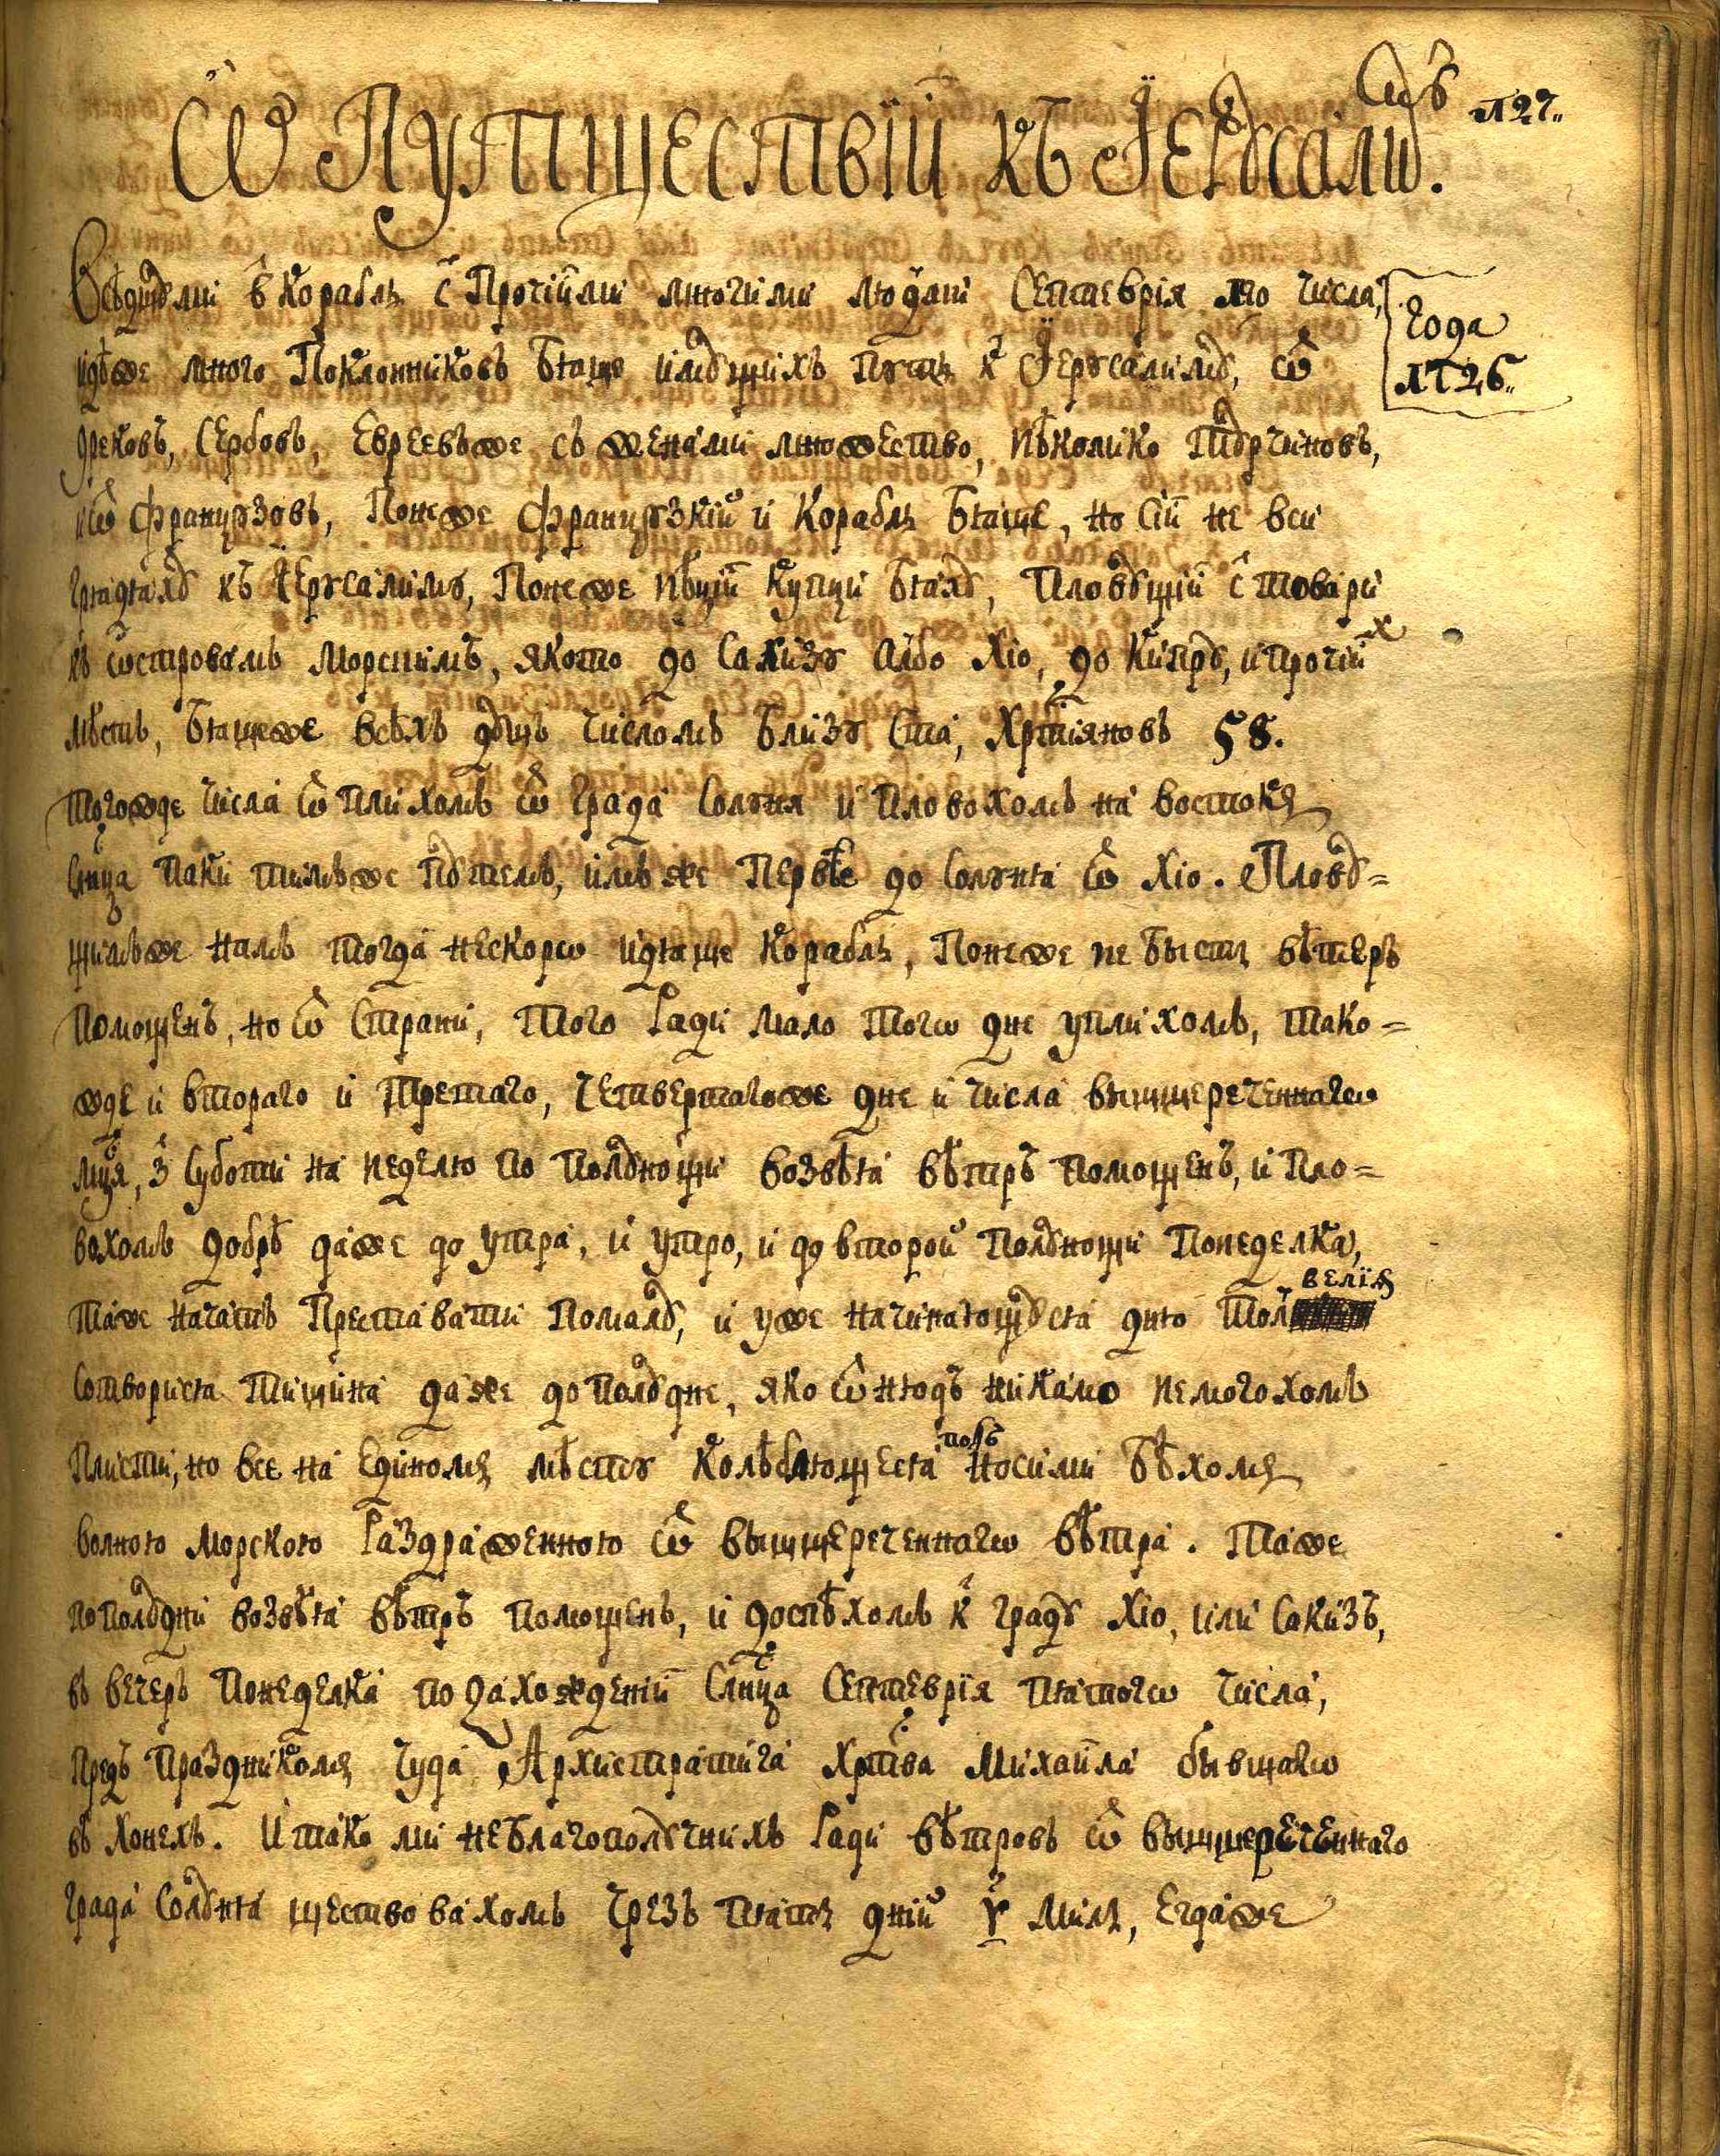 Ѡ Путшествїи къ Іерꙋсалим.
127.
Всѣдшꙋ ми в корабль с прочіими многими людми Септеврія 1го числа,
года
1726.
идѣже много поклонниковъ бяше имꙋщихъ путь к Іерусалимꙋ, ѿ
Грековъ, Сербовъ, Евреевъже съ женами множество, нѣколико Тꙋрчиновъ,
и ѿ Французовъ, понеже Французкій и корабль бяше, но сіи не вси
грядяхꙋ къ Іерусалиму, понеже нѣціи купци бяхꙋ, пловꙋщіи с товари
къ ѡстровамъ морскимъ, якото до Сакизу албо Хіо, до Кипрꙋ, и прочіих
мѣстъ, бяшеже всѣхъ дꙋшъ числомъ близу ста, Хрстіяновъ 58.
Тогожде числа ѿплихомъ ѿ града Солуня и пловохомъ на востокъ
слнца паки тимъже пꙋтемъ, имъже первѣе до Солуня ѿ Хіо. Пловꙋ=
щимъже намъ тогда нескорѡ идяше корабль, понеже не бысть вѣтеръ
помощенъ, но ѿ страни, того ради мало тогѡ дне уплихомъ, тако=
жде и втораго и третаго, четвертагоже дне и числа вышшереченнагѡ
мсця, з суботи на неделю по полꙋнощи возвѣя вѣтръ помощенъ, и пло=
вохомъ добрѣ даже до утра, и утро, и до второй полꙋнощи понеделка,
таже начатъ преставати помалꙋ, и уже начинающꙋся дню тол велія
сотворися тишина даже до полꙋдне, яко ѿнюдъ никамо немогохомъ
плисти, но все на единомъ мѣсту колѣблющеся токъ носими бѣхомъ
волною морскою раздраженною ѿ вышшереченнагѡ вѣтра. Таже
по полꙋдни возвѣя вѣтръ помощенъ, и доспѣхомъ к градꙋ Хіо, или Сакизъ,
въ вечеръ понеделка по захожденіи слнца Септеврїя пятогѡ числа,
предъ праздникомъ чуда Архистратига Хртва Михаила бывшагѡ
въ Хонехъ. И тако ми неблагополꙋчнихъ ради вѣтровъ ѿ вышшереченнаго
града Солꙋня шествовахомъ чрезъ пять дній у миль, егдаже